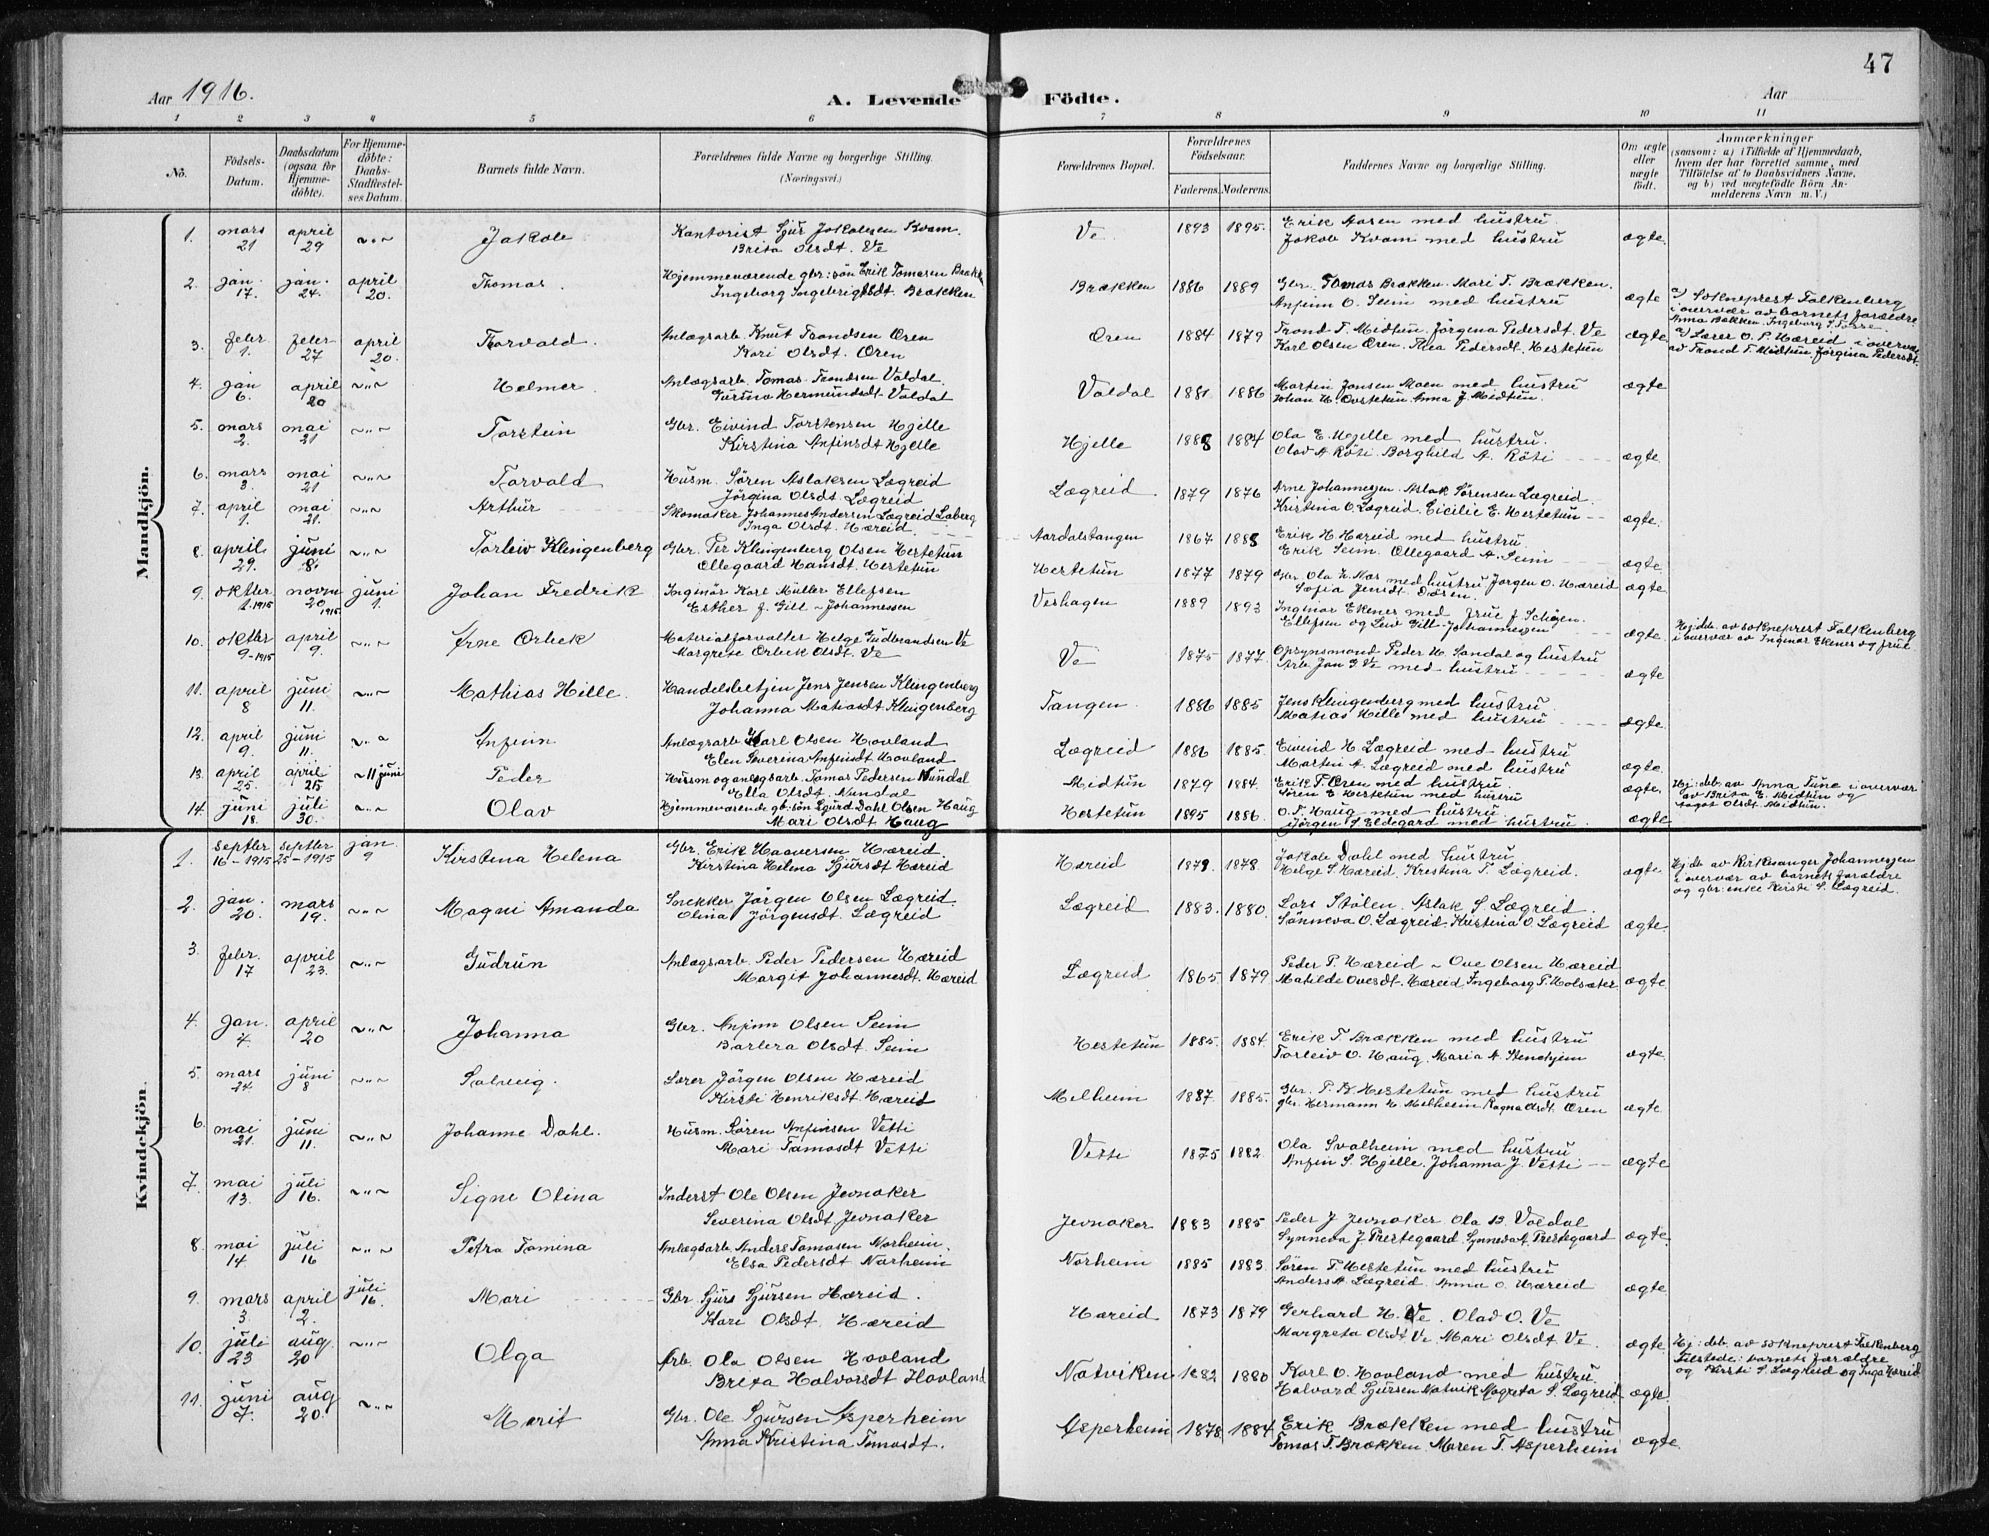 47
Aar 1916.
A. Levende Födte.
Aar
1 2 3 4 5 6 7 8 9 10 11
No.
Födsels-Datum.
Daabsdatum (ogsaa for Hjemme-döbte).
For Hjemme-döbte: Daabs-Stadfæstel-ses Datum.
Barnets fulde Navn.
Forældrenes fulde Navne og borgerlige Stilling. (Næringsvei.)
Forældrenes Bopæl.
Forældrenes Födselsaar.
Faderens. Moderens.
Faddernes Navne og borgerlige Stilling.
Om ægte eller uægte födt.
Anmærkninger
(saasom: a) i Tilfælde af Hjemmedaab, hvem der har forrettet samme, med Tilföielse af to Daabsvidners Navne, og b) ved uægtefödte Börn An-melderens Navn m. V.)
Mandkjön.
1. mars 21 april 29 ~"~ Jakob Kontorist Sjur Jakobsen Kvam. Brita Olsdt. Ve Ve 1893 1895. Erik Aasen med hustru. Jakob Kvam med hustru ægte.
2. jan. 17. jan. 24. april 20. Thomas. Hjemmeværende gbr: søn Erik Tomasen Brække Ingeborg Ingebrigtsdt. Brækken Brækken 1886 1889 Gbr. Tomas Brækken. Mari T. Brækken. Anfinn O. Seim med hustru ægte a) Sokneprest Falkenberg i overvær av barnets forældre Anna Brækken. Ingeborg S. Torse.
3. febr. 1. febr. 27 april 20. Torvald. Anlægsarb. Knut Trondsen Øren Kari Olsdt. Øren Øren 1884 1879 Trond T. Midtun. Jørgina Pedersdt. Ve Karl Olsen Øren. Thea Pedersdt. Hestetun ægte a) Lærer O. P. Hæreid i overvær av Trond T. Midtun Jørgina Pedersdt.
4. jan 6. april 20 ~"~ Helmer. Anlægsarb. Tomas Trondsen Voldal. Gurina Hermundsdt. Voldal Voldal 1881 1886 Martin Jonsen Moen med hustru Johan H. Ovstetun. Anna J. Midtun. ægte
5. mars 2. mai 21 ~"~ Torstein Gbr. Eivind Torstensen Hjelle Kirstina Anfinsdt Hjelle Hjelle 1888 1884 Ola E. Hjelle med hustru. Olav A. Röti Borghild A. Röti ægte.
6. mars 3. mai 21 ~"~ Torvald Husm. Sören Aslaksen Lægreid Jörgina Olsdt. Lægreid Lægreid. 1879 1876 Arne Johannessen. Aslak Sørensen Lægreid. Kristina O. Lægreid. Cicilie E. Hestetun ægte.
7. april 1. mai 21. ~"~ Arthur Skomaker Johannes Andersen Lægreid Laberg Inga Olsdt. Hæreid. Aardalstangen 1867 1888 Erik H Hæreid med hustru. Erik Seim. Ollegaard A. Seim ægte.
8. april 29. juni 8. ~"~ Torleiv Klingenberg Gbr. Per Klingenberg Olsen Hestetun Ollegaard Hansdt. Hestetun Hestetun 1877 1879 Gbr Ola H. Næs med hustru Jørgen O. Hæreid Sofia Jensdt. Døsen. ægte
9. oktbr 1. 1915 novm 20 1915 juni 1. Johan Fredrik Ingeniør Kare Müller Ellefsen Esther f. Gill - Johannessen Veehagen 1889 1893 Ingeniør Ekenes med frue f. Schøyen. Ellefsen og Leiv Gill-Johannessen ægte Hj.db. av sokneprest Falkenberg i overvær av Ingeniør Ekenes og frue
10. oktbr 9-1915 april 9. ~"~ Arne Orbek Materialforvalter Helge Gudbrandsen Ve Margrete Orbek Olsdt. Ve Ve 1875 1877. Opsynsmand Peder H. Sandal og hustru Arb. Jon G Ve med hustru ægte
11. april 8 juni 11. ~"~ Mathias Hille. Handelsbetjin Jens Jensen Klingenberg Johanna Matiasdt Klingenberg Tangen. 1886 1885 Jens Klingenberg med hustru. Matias Hille med hustru ægte.
12. april 9. juni 11. ~"~ Anfinn Anlægsarb Karl Olsen Hovland Elen Severina Anfinsdt Hovland Lægreid 1886 1885. Eivind H. Lægreid med hustru Martin A. Lægreid med hustru ægte.
13. april 25. april 25 ~11 juni Peder Husm og anlægsarb. Tomas Pedersen Nundal Ella Olsdt. Nundal Midtun 1879 1884. Erik T. Øren med hustru. Sören E Hestetun med hustru ægte. Hj: db. av Anna Tune i overvær av Brita E. Midtun og Aagot Olsdt Midtun.
14. juni 18. juli 30. ~"~ Olav Hjemmeværende gb: søn Sjurd Dahl Olsen Haug Mari Olsdt Haug Hestetun 1895 1886. O. T. Haug med hustru. Jörgen S. Eldegard med hustru. ægte
Kvindekjön.
1. septbr 16-1915 septbr 25-1915 jan 9 Kirstina Helena Gbr. Erik Haaversen Hæreid. Kirstina Helena Sjursdt Hæreid Hæreid 1879. 1878. Jakob Dahl med hustru Helge S. Hæreid. Kristina T. Lægreid. ægte. Hj.db av Kirkesanger Johannessen i overvær av barnets forældre og gbr: enke Kirsti S. Lægreid.
2. jan. 20. mars 19. ~"~ Magni Amanda Snekker Jörgen Olsen Lægreid. Olina Jörgensdt. Lægreid Lægreid 1883. 1880. Lars Stölen. Aslak S. Lægreid. Sønneva O. Lægreid. Kristina O. Lægreid ægte.
3. febr. 17 april 23. ~"~ Gudrun Anlægsarb. Peder Pedersen Hæreid Margit Johannesdt. Hæreid Lægreid 1865. 1879 Peder P. Hæreid - Ove Olsen Hæreid Matilde Ovesdt. Hæreid Ingeborg P. Holsæter ægte.
4. jan. 4. april 20 ~"~ Johanna Gbr. Anfinn Olsen Seim Barbra Olsdt. Seim Hestetun 1885. 1884. Erik T. Brækken med hustru Torleiv O. Haug. Maria A. Stenehjem ægte.
5. mars 24 juni 8 ~"~ Solveig. Lærer Jörgen Olsen Hæreid Kirsti Henriksdt Hæreid Melheim 1887. 1885. Gbr. P. B Hestetun med hustru gbr. Hermann H. Melheim Ragna Olsdt. Øren ægte.
6. mai 21. juni 11. ~"~ Johanne Dahl. Husm. Sören Anfinsen Vetti Mari Tomasdt Vetti Vetti 1875 1882. Ola Svalheim med hustru Anfin S. Hjelle. Johanna J. Vetti ægte
7. mai 13. juli 16. ~"~ Signe Olina Inderst Ole Olsen Jevnaker Severina Olsdt Jevnaker Jevnaker 1883 1885 Peder J Jevnaker Ola B. Voldal Synneva J. Prestegaard Synneva A. Prestegaard ægte.
8. mai 14 juli 16 ~"~ Petra Tomina Anlægsarb. Anders Tomasen Norheim. Elsa Pedersdt Norheim Norheim 1885 1883. Sören T. Hestetun med hustru Anders A. Lægreid. Anna O. Hæreid ægte.
9. mars 3. april 2. juli 16. Mari Gbr. Sjurs Sjursen Hæreid. Kari Olsdt. Hæreid Hæreid 1873 1879 Gerhard H. Ve. Olav O. Ve Margreta Olsdt Ve Mari Olsdt Ve. ægte.
10. juli 23 aug. 20 ~"~ Olga Arb. Ola Olsen Hovland Brita Halvorsdt Hovland Natviken 1882 1880 Karl O. Hovland med hustru. Halvard Sjursen Natvik Magreta S. Lægreid ægte. Hj: db. av sokneprest Falkenberg Tilstede: barnets forældre og Kirsti S. Lægreid og Inga Hæreid
11. juni 7. aug 20. ~"~ Marit Gbr. Ole Sjursen Asperheim Anna Kristina Tomasdt. Asperheim 1878 1884 Erik Brækken med hustru Tomas T. Brækken. Maren T. Asperheim ægte.